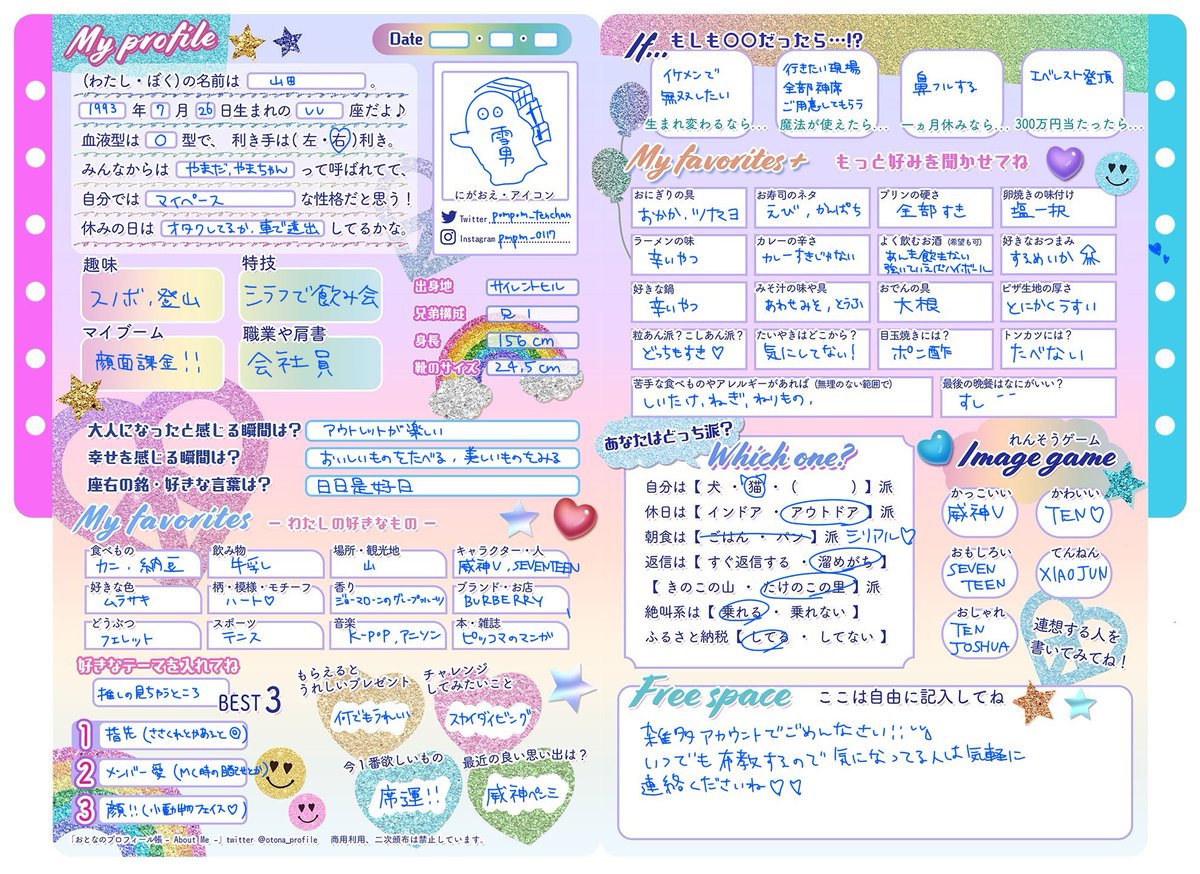 My profile
Date
(わたし・ぼく)の名前は 山田 。
1993 年 7 月 26 日生まれの しし 座だよ♪
血液型は O 型で、 利き手は(左・右)利き。
みんなからは やまだ,やまちゃん って呼ばれてて、
自分では マイペース な性格だと思う!
休みの日は オタクしてるか,車で遠出 してるかな。
雪男
にがおえ・アイコン
Twitter pompom_tenchan
Instagram pmpm_0117
趣味
スノボ,登山
特技
シラフで飲み会
マイブーム
顔面課金!!
職業や肩書
会社員
出身地 サイレントヒル
兄弟構成 兄1
身長 156cm
靴のサイズ 24,5cm
大人になったと感じる瞬間は? アウトレットが楽しい
幸せを感じる瞬間は? おいしいものをたべる,美しいものをみる
座右の銘・好きな言葉は? 日日是好日
My favorites ーわたしの好きなものー
食べもの
カニ,納豆
飲み物
牛乳
場所・観光地
山
キャラクター・人
威神V,SEVENTEEN
好きな色
ムラサキ
柄・模様・モチーフ
ハート♡
香り
ジョーマローンのグレープフルーツ
ブランド・お店
BURBERRY
どうぶつ
フェレット
スポーツ
テニス
音楽
K-POP,アニソン
本・雑誌
ピッコマのマンガ
好きなテーマを入れてね
推しの見ちゃうところ
BEST3
1 指先(ささくれとかあると◎)
2 メンバー愛(MC時の
3 顔!!(小動物フェイス♡)
もらえると
うれしいプレゼント
何でもうれしい
チャレンジ
してみたいこと
スカイダイビング
今1番欲しいもの
席運!!
最近の良い思い出は?
威神ペンミ
「おとなのプロフィール帳 - About Me -」twitter @otona_profile 商用利用、二次頒布は禁止しています。
If... もしも〇〇だったら…!?
イケメンで
無双したい
生まれ変わるなら…
行きたい現場
全部神席
ご用意してもらう
魔法が使えたら…
鼻フルする
一ヵ月休みなら…
エベレスト登頂
300万円当たったら…
My favorites+ もっと好みを聞かせてね
おにぎりの具
おかか,ツナマヨ
お寿司のネタ
えび,かんぱち
プリンの硬さ
全部すき
卵焼きの味付け
塩一択
ラーメンの味
辛いやつ
カレーの辛さ
カレーすきじゃない
よく飲むお酒(希望も可)
あんま飲まない
強いていえばハイボール
好きなおつまみ
するめいか
好きな鍋
辛いやつ
みそ汁の味や具
あわせみそ,とうふ
おでんの具
大根
ピザ生地の厚さ
とにかくうすい
粒あん派?こしあん派?
どっちもすき♡
たいやきはどこから?
気にしてない!
目玉焼きには?
ポン酢
トンカツには?
たべない
苦手な食べものやアレルギーがあれば(無理のない範囲で)
しいたけ,ねぎ,ねりもの,
最後の晩餐はなにがいい?
すし
あなたはどっち派?
Which one?
自分は【 犬 ・ 猫 ・( )】派
休日は【 インドア ・ アウトドア 】派
朝食は【 ごはん ・ パン 】派 シリアル♡
返信は【 すぐ返信する ・ 溜めがち 】
【 きのこの山 ・ たけのこの里 】派
絶叫系は【 乗れる ・ 乗れない 】
ふるさと納税【 してる ・ してない 】
れんそうゲーム
Image game
かっこいい
威神V
かわいい
TEN♡
おもしろい
SEVEN
TEEN
てんねん
XIAOJUN
おしゃれ
TEN
JOSHUA
連想する人を
書いてみてね!
Free space ここは自由に記入してね
雑多アカウントでごめんなさい!!
いつでも布教するので気になってる人は気軽に
連絡くださいね♡♡